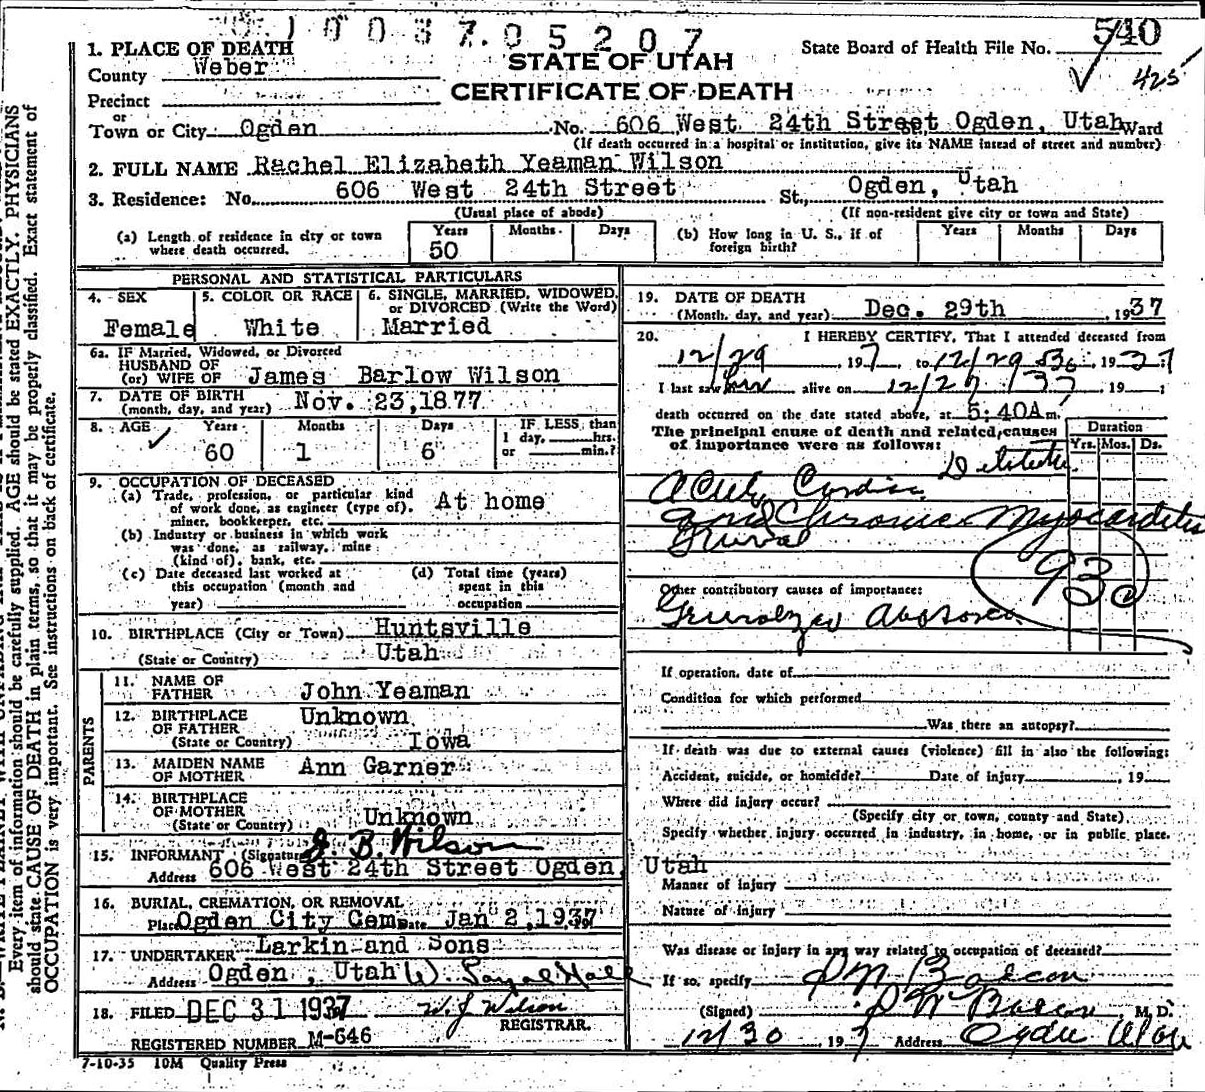 1003705207
540
425
1. PLACE OF DEATH
County Weber
Precinct
or
Town or City Ogden No. 606 West 24th Street Ogden, Utah Ward
STATE OF UTAH
CERTIFICATE OF DEATH
State Board of Health File No.
(If death occurred in a hospital or institution, give its NAME instead of street and number)
2. FULL NAME Rachel Elizabeth Yeaman Wilson
3. Residence: No. 606 West 24th Street St., Ogden, Utah
(Usual place of abode) (If non-resident give city or town and State)
(a) Length of residence in city or town where death occurred. Years 50 Months Days
(b) How long in U. S., if of foreign birth? Years Months Days
PERSONAL AND STATISTICAL PARTICULARS
4. SEX Female
5. COLOR OR RACE White
6. SINGLE, MARRIED, WIDOWED, or DIVORCED (Write the Word) Married
6a. IF Married, Widowed, or Divorced
HUSBAND OF
(or) WIFE OF James Barlow Wilson
7. DATE OF BIRTH
(month, day, and year) Nov. 23, 1877
8. AGE Years 60 Months 1 Days 6 IF LESS than 1 day, hrs. or min.?
9. OCCUPATION OF DECEASED
(a) Trade, profession, or particular kind of work done, as engineer (type of), miner, bookkeeper, etc. At home
(b) Industry or business in which work was done, as railway, mine (kind of), bank, etc.
(c) Date deceased last worked at this occupation (month and year)
(d) Total time (years) spent in this occupation
10. BIRTHPLACE (City or Town) Huntsville
(State or Country) Utah
PARENTS
11. NAME OF FATHER John Yeaman
12. BIRTHPLACE OF FATHER Unknown
(State or Country) Iowa
13. MAIDEN NAME OF MOTHER Ann Garner
14. BIRTHPLACE OF MOTHER
(State or Country) Unknown
15. INFORMANT (Signature) J. B. Wilson
Address 606 West 24th Street Ogden, Utah
16. BURIAL, CREMATION, OR REMOVAL
Place Ogden City Cem. Date Jan 2, 1937
17. UNDERTAKER Larkin and Sons
Address Ogden, Utah
18. FILED DEC 31 1937 W. J. Wilson
REGISTRAR.
REGISTERED NUMBER M-646
7-10-35 10M Quality Press
19. DATE OF DEATH
(Month, day, and year) Dec. 29th, 1937
20. I HEREBY CERTIFY, That I attended deceased from
12/29, 1937 to 12/29, 1937
I last saw her alive on 12/29 /37 19 ;
death occurred on the date stated above, at 5:40A m.
The principal cause of death and related causes of importance were as follows:
Duration
Yrs. Mos. Ds.
Cardiac
and Chronic Myocarditis
93
Other contributory causes of importance:
If operation, date of
Condition for which performed
Was there an autopsy?
If death was due to external causes (violence) fill in also the following:
Accident, suicide, or homicide? Date of injury , 19
Where did injury occur?
(Specify city or town, county and State)
Specify whether injury occurred in industry, in home, or in public place.
Manner of injury
Nature of injury
Was disease or injury in any way related to occupation of deceased?
If so, specify
(Signed) M. D.
12/30 1937 Address Ogden Utah
Every item of information should be carefully supplied. AGE should be stated EXACTLY. PHYSICIANS
should state CAUSE OF DEATH in plain terms, so that it may be properly classified. Exact statement of
OCCUPATION is very important. See instructions on back of certificate.